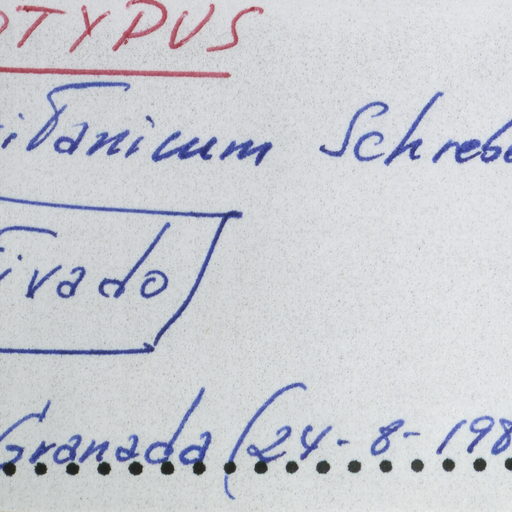 OTYPUS
itanicum Schrebe
tivado
Granada (24-8-198